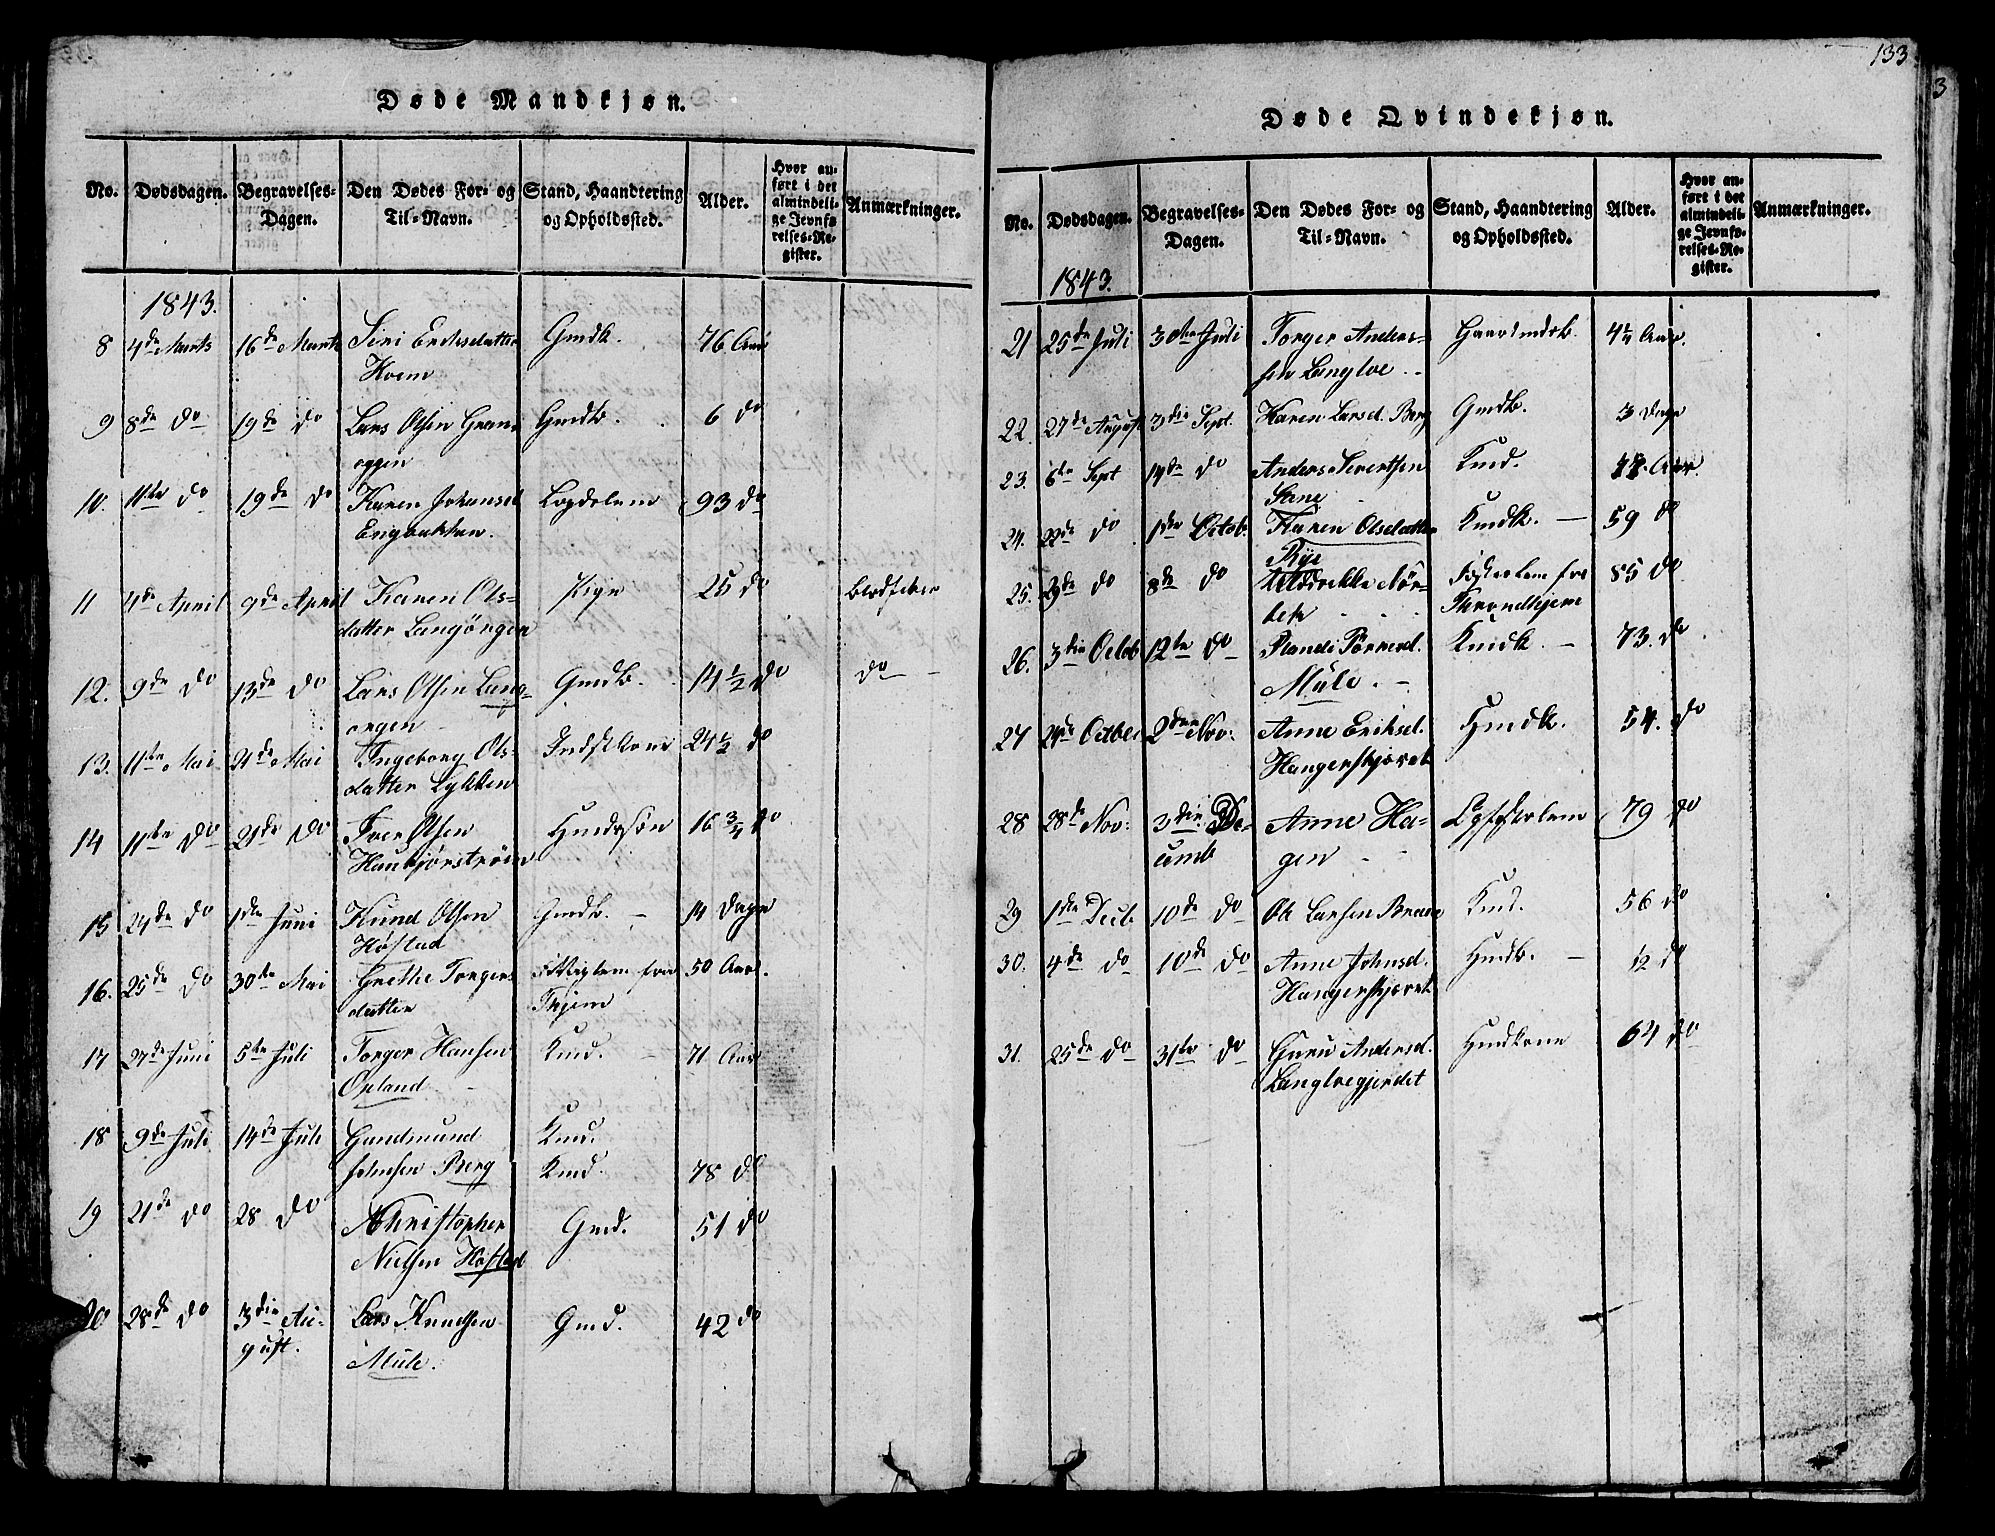 Døde Mandkjøn.
No. Dødsdagen. Begravelses-Dagen. Den Dødes For- og Til-Navn. Stand, Haandtering og Opholdssted. Alder. Hvor anført i det almindelige Jevnførelses-Register. Anmærkninger.
1843.
8 4de Marts 16de Marts Siri Eriksdatter Gmdk. 76 Aar
Hoem
9 8de do 19de do Lars Olsen Gran- Gmdb. 6 do
oggen
10. 11te do 19de do Karen Johansd Lægdslem 93 do
Engbakken.
11 4de April 9de April Karen Ols- Pige 25 do Blodfeber
datter Langørgen
12. 9de do 13de do Lars Olsen Lang- Gmdb. 14 1/2 do do
ørgen
13. 11te Mai 21de Mai Ingeborg Ols- 24 1/2 do
datter Lykken
14 11te do 21de do Iver Olsen Hmdssøn 16 3/4 do
Haukjørstrøen
15 24de do 1ste Juni Knud Olsen Gmdb. 14 Dage
Høstad
16. 25de do 30te Mai Grethe Torgers fra 50 Aar.
datter Thjem
17 27de Juni 5te Juli Torger Hansen Kmd. 71 Aar
Opland
18 9de Juli 14de Juli Gundmund Kmd.
Johnsen Berg Kmd. 78 do
19 21de do 28 do Christopher Gmd. 51 do
Nielsen Høstad
20 28de do 3die Au- Lars Knudsen Gmd. 42 do
gust. Mule.
133
3
Døde Qvindekjøn.
No. Dødsdagen. Begravelses-Dagen. Den Dødes For- og Til-Navn. Stand, Haandtering og Opholdssted. Alder. Hvor anført i det almindelige Jevnførelses-Register. Anmærkninger.
1843.
21 25de Juli 30te Juli Torger Anders- Aar.
sen Langloe
22. 27de August 3die Sept. Karen Larsd. Berg Gmdb. 3 Dage
23. 6te Sept 14de do Anders Sivertsen Kmd. Aar.
24. 22de do 1ste Octob. Karen Olsdatter Kmdk. 59 do
Rye
25. do 8de do Nør- fra 85 do
bek Throndhjem
26. 3die Octob 12te do Randi Tørresd. Kmdk. 73. do
Mule.
27 24de Octber 2den Nov: Anne Eriksd. Hmdk. 54. do
Hangerskjæret
28 28de Nov: 3die De- Anne Ha- 79 do
cemb gen
29 1ste Decb 10de do Ole Larsen Kmd. 56 do
30. 4de do 10de do Anne Johnsd. Hmdb. 12 do
Hangerskjæret
31. 25de do 31te do Guru Andersd. Hmdkone 64 do
Langloegjerdet